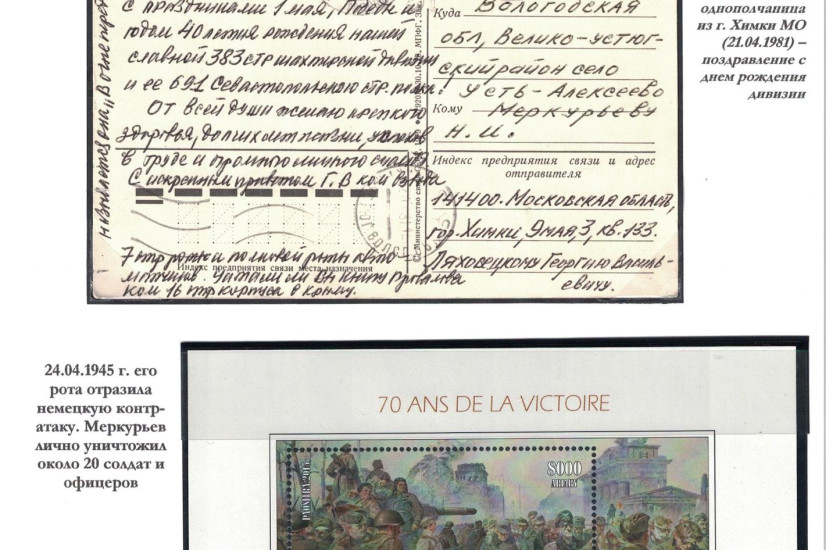 с праздниками 1 мая, Победы и
годом 40 летия рождения нашей
славной 383 стр шахтерской дивизии
и ее 691 Севастопольского стр. полка!
От всей души желаю крепкого
здоровья, долгих лет жизни, успехов
в труде и огромного личного счастья
С искренним приветом Г. В ком взвода
7 стр роты и
Индекс предприятия связи места назначения
матчиков. Читали ли Вы книгу
ком 16 стр корпуса в Крыму.
Куда Вологодская
обл, Велико-устюг-
ский район село
Усть-Алексеево
Кому Меркурьеву
Н. И.
Индекс предприятия связи и адрес
отправителя
141400. Московская область,
гор. Химки, 9 мая, 3, кв. 133.
Ляховецкому Георгию Василь-
евичу.
однополчанина
из г. Химки МО
(21.04.1981) –
поздравление с
днем рождения
дивизии
24.04.1945 г. его
рота отразила
немецкую контр-
атаку. Меркурьев
лично уничтожил
около 20 солдат и
офицеров
70 ANS DE LA VICTOIRE
8000